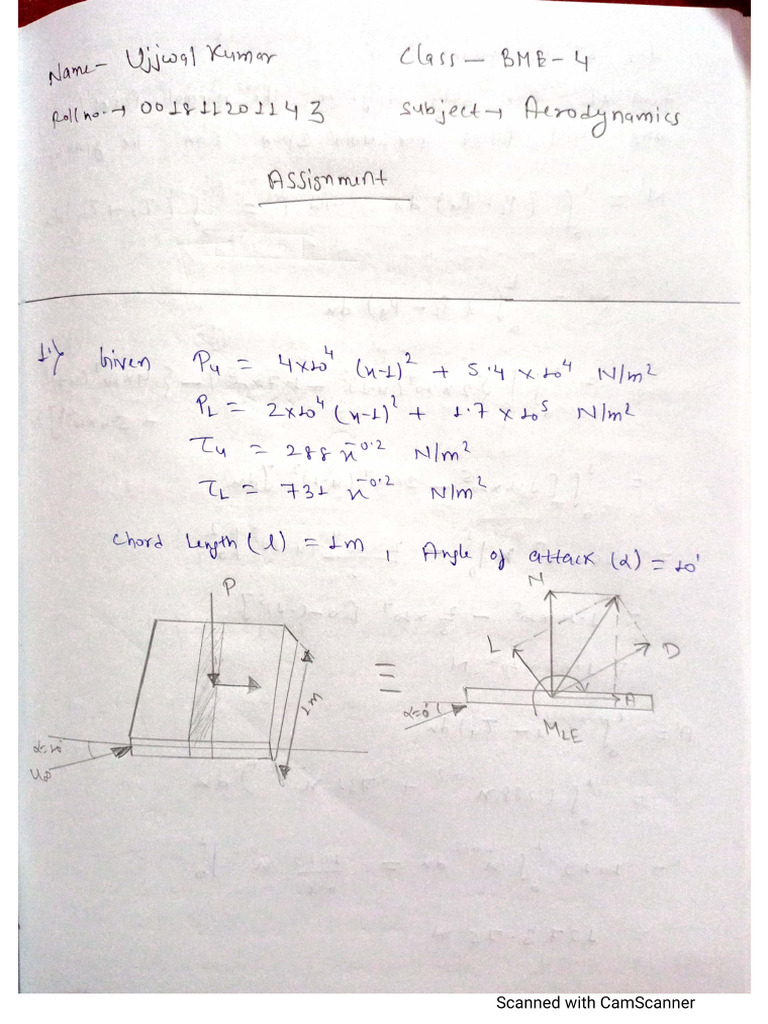 Name- Ujjwal Kumar Class- BME-4
Roll no.→ 001811201143 Subject→ Aerodynamics
Assignment
1.) Given Pu = 4×10⁴ (x-1)² + 5.4×10⁴ N/m²
PL = 2×10⁴ (x-1)² + 1.7×10⁵ N/m²
τu = 288 x^-0.2 N/m²
τL = 731 x^-0.2 N/m²
Chord Length (l) = 1m, Angle of attack (α) = 10°
P
1m
α=10°
U∞
≡
N
L
D
A
MLE
Scanned with CamScanner